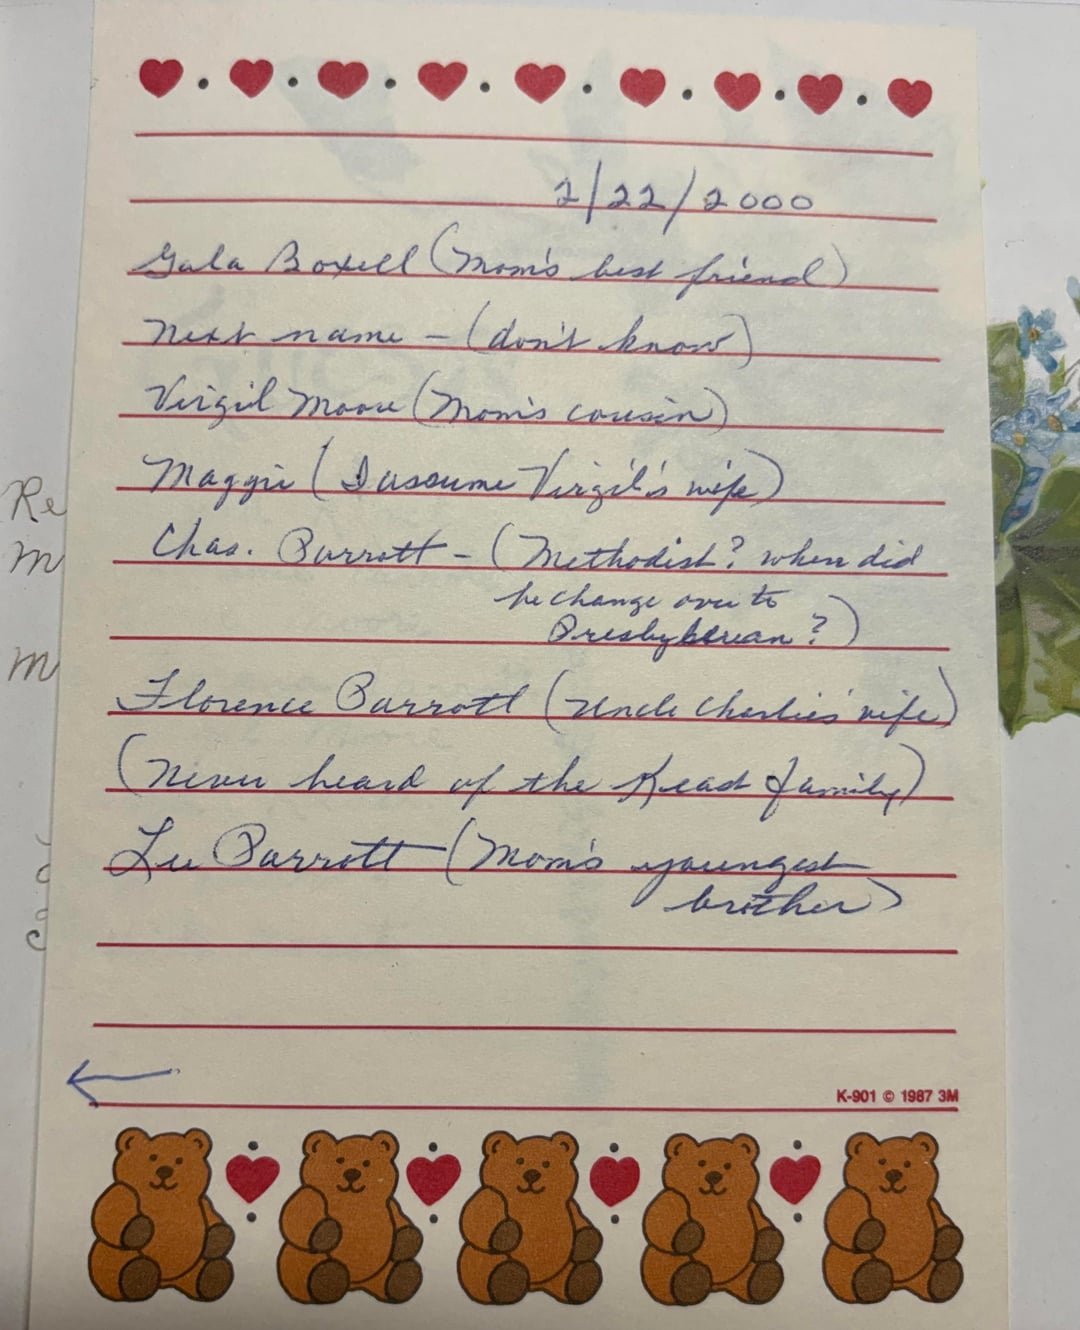 2/22/2000
Gala Boxell (Mom's best friend)
Next name - (don't know)
Virgil Moore (Mom's cousin)
Maggie (I assume Virgil's wife)
Chas. Parrott - (Methodist? when did
he change over to
Presbyterian?)
Florence Parrott (Uncle Charlie's wife)
(Never heard of the Kead family)
Lee Parrott (Mom's youngest
brother)
K-901 © 1987 3M
Re
m
m